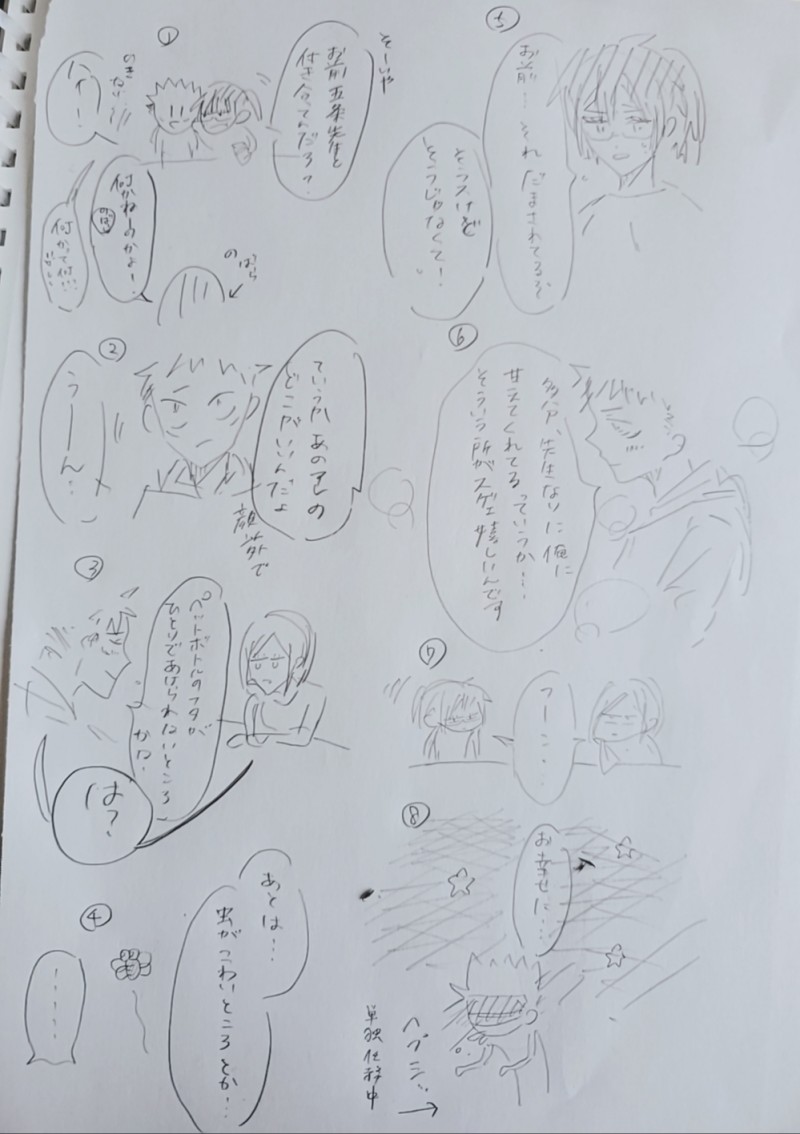 ①
そーいや
お前五条先生と
付き合ってんだろ?
ハイ!
何かねーのかよー!
何かって何!?
のばら
②
ていうかあの人の
どこがいいんだよ
顔以外で
うーん…
③
ペットボトルのフタが
ひとりであけられないところ
かな。
は?
④
あとは…
虫がこわいところとか…
……
⑤
お前…それだまされてるぞ
そうだけど
そうじゃなくて!
⑥
多分、先生なりに俺に
甘えてくれてるっていうか…
そういう所がスゲェ嬉しいんです
⑦
フーン…
⑧
お幸せに…
ヘプシッ
単独任務中